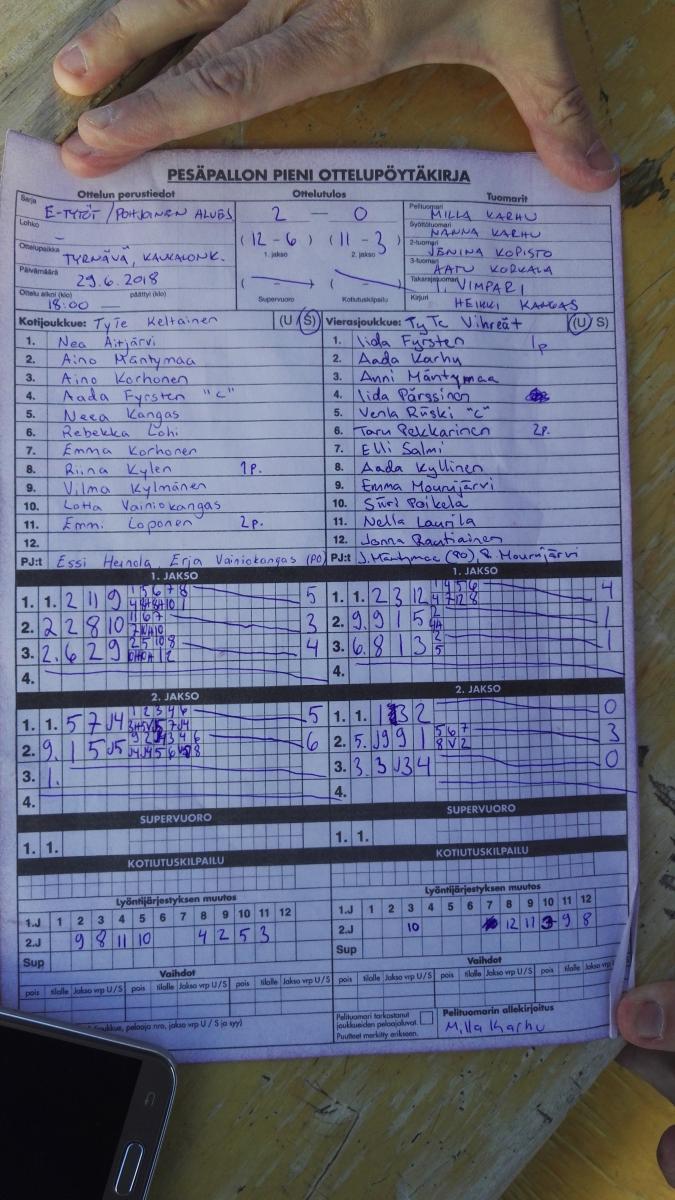 PESÄPALLON PIENI OTTELUPÖYTÄKIRJA
Ottelun perustiedot
Ottelutulos
Tuomarit
Sarja E-TYTÖT / POHJOINEN ALUE
Lohko –
Ottelupaikka TYRNÄVÄ,
Päivämäärä 29.6.2018
Ottelu alkoi (klo) päättyi (klo)
18:00 —
2 — 0
(12 - 6) (11 - 3)
1. jakso 2. jakso
Supervuoro Kotiutuskilpailu
Pelituomari MILLA KARHU
Syöttötuomari NANNA KARHU
2-tuomari JENINA KOPISTO
3-tuomari AATU KORKALA
Takarajatuomari I. VIMPARI
Kirjuri HEIKKI KANGAS
Kotijoukkue: TyTe Keltainen (U S)
1. Nea Äitjärvi
2. Aino Mäntymaa
3. Aino Korhonen
4. Aada Fyrsten "C"
5. Neea Kangas
6. Rebekka Lohi
7. Emma Korhonen
8. Riina Kylen 1p.
9. Vilma Kylmänen
10. Lotta Vainiokangas
11. Emmi Loponen 2p.
12.
PJ:t Essi Heinola, Erja Vainiokangas (PO)
Vierasjoukkue: TyTe Vihreät (U S)
1. Iida Fyrsten 1p
2. Aada Karhu
3. Anni Mäntymaa
4. Iida Pärssinen
5. Venla Rüski "C"
6. Taru Pekkarinen 2p.
7. Elli Salmi
8. Aada Kyllinen
9. Emma Mourujärvi
10. Siiri Poikela
11. Nella Laurila
12. Jonna Rautiainen
PJ:t J. Mäntymaa (PO) R. Mourujärvi
1. JAKSO
1. 1. 2 11 9 5
2. 2 2 8 10 3
3. 2. 6 2 9 4
4.
1. JAKSO
1. 1. 2 3 12 4
2. 9. 9 1 5 1
3. 6. 8 1 3 1
4.
2. JAKSO
1. 1. 5 7 J4 5
2. 9. 1 5 J5 6
3. 1.
4.
2. JAKSO
1. 1. 1 3 2 0
2. 5. J9 9 1 5 6 7 8 V 2 3
3. 3. 3 J3 4 0
4.
SUPERVUORO
1. 1.
SUPERVUORO
1. 1.
KOTIUTUSKILPAILU
KOTIUTUSKILPAILU
Lyöntijärjestyksen muutos
1.J 1 2 3 4 5 6 7 8 9 10 11 12
2.J 9 8 11 10 4 2 5 3
Sup
Lyöntijärjestyksen muutos
1.J 1 2 3 4 5 6 7 8 9 10 11 12
2.J 10 12 11 3 9 8
Sup
Vaihdot
pois tilalle Jakso vrp U / S pois tilalle Jakso vrp U / S pois tilalle Jakso vrp U / S
Vaihdot
pois tilalle Jakso vrp U / S pois tilalle Jakso vrp U / S pois tilalle Jakso vrp U / S
pelaaja nro, jakso vrp U / S ja syy)
Pelituomari tarkastanut
joukkueiden pelaajaluvat.
Puutteet merkitty erikseen.
Pelituomarin allekirjoitus
Milla Karhu